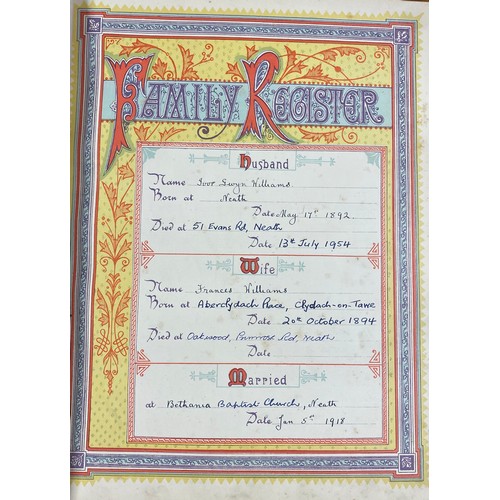 Family Register
Husband
Name Ivor Gwyn Williams
Born at Neath
Date May 17th 1892
Died at 51 Evans Rd, Neath
Date 13th July 1954
Wife
Name Frances Williams
Born at Aberclydach Place, Clydach-on-Tawe
Date 20th October 1894
Died at Oakwood, Primrose Rd, Neath
Date
Married
at Bethania Baptist Church, Neath
Date Jan 5th 1918